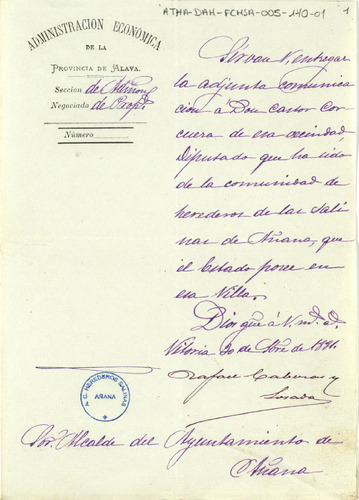 ATHA-DAH-FCHSA-005-140-01
1
ADMINISTRACION ECONÓMICA
DE LA
PROVINCIA DE ALAVA.
Seccion de Admon
Negociado de Propds
Número
Sirvase V. entregar
la adjunta comunica
cion á Don Castor Cor
cuera de esa vecindad,
Diputado que ha sido
de la comunidad de
herederos de las Sali
nas de Añana, que
el Estado posee en
esa Villa.
Dios gue á V. m.s a.s
Vitoria 30 de 1881.
Rafael Caberas y
Losada
A. C. HEREDEROS SALINAS
AÑANA
Sor. Alcalde del Ayuntamiento de
Añana